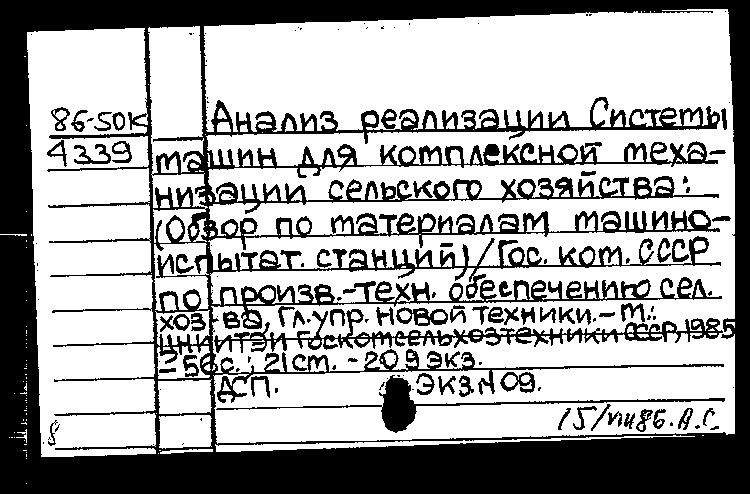 86-50К Анализ реализации Системы
4339 машин для комплексной меха-
низации сельского хозяйства:
(Обзор по материалам машино-
испытат. станций) / Гос. ком. СССР
по произв.-техн. обеспечению сел.
хоз-ва, Гл. упр. новой техники. - М.:
ЦНИИТЭИ Госкомсельхозтехники СССР, 1985
- 56с.; 21 см. - 209 экз.
ДСП. Экз. N 09.
8